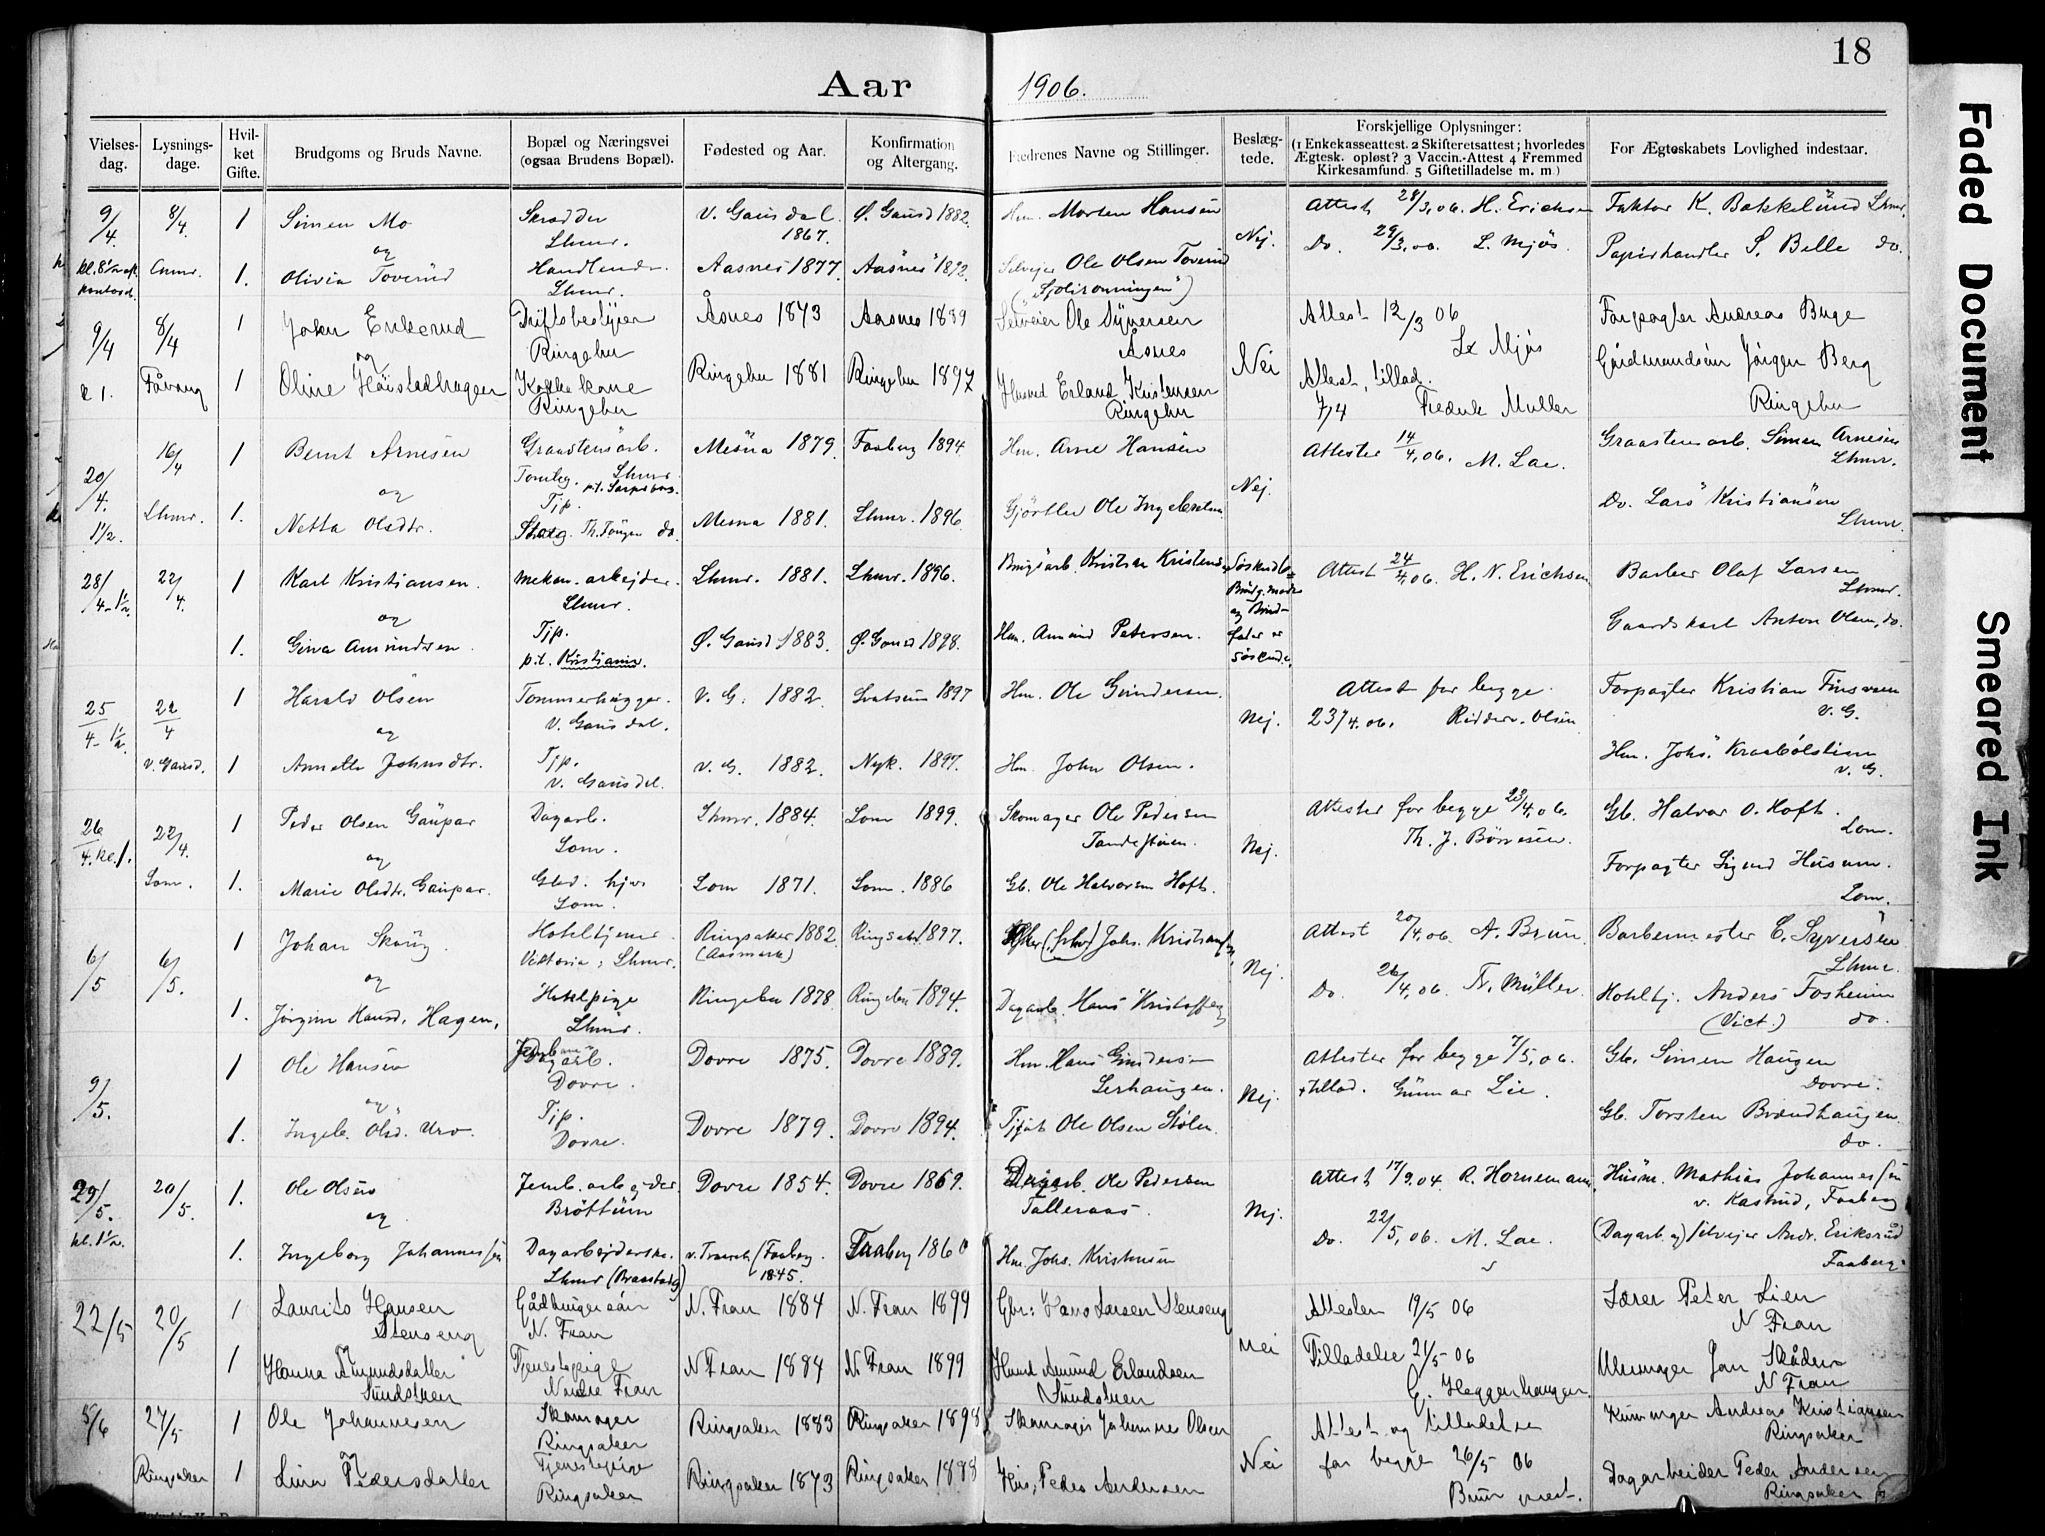 18
Aar 1906.
Vielses-dag. Lysnings-dage. Hvil-ket Gifte. Brudgoms og Bruds Navne. Bopæl og Næringsvei (ogsaa Brudens Bopæl). Fødested og Aar. Konfirmation og Altergang. Fædrenes Navne og Stillinger. Beslæg-tede. Forskjellige Oplysninger: (1 Enkekasseattest. 2 Skifteretsattest; hvorledes Ægtesk. opløst? 3 Vaccin.-Attest 4 Fremmed Kirkesamfund. 5 Giftetilladelse m. m.) For Ægteskabets Lovlighed indestaar.
9/4. 8/4. 1 Simen Mo Skrædder Lhmr. V. Gausdal. 1867. Ø. Gausd 1882. Hm. Morten Hansen Attest 28/3, 06. H. Erichsen Faktor K. Bakkelund Lhmr.
og Nej. Do. 29/3. 06. L. Mjøs. Papirhandler S. Belle do.
1. Olivia Toverud Handlende. Lhmr. Aasnes 1877. Aasnes 1892. Selvejer Ole Olsen Toverud
9/4 8/4 1 John Enkerud Driftsbestyrer Ringebu Åsnes 1873 Aasnes 1889 Selveier Ole Syversen Åsnes Attest 12/3 06 L. Mjøs Forpagter Andreas Buge
og Nei
Fåvang 1 Oline Høistadhagen Kokkekone Ringebu Ringebu 1881 Ringebu 1897 Husmd Erland Kristensen Ringebu Attest, tillad. 7/4 Fredrik Müller Gårdmandsøn Jørgen Berg Ringebu
20/4. 16/4 1 Bernt Arnesen Graastensarb. Lhmr. Mesna 1879. Faaberg 1894 Hm. Arne Hansen Attester 14/4, 06. M. Lae. Graastensarb. Simen Arnesen Lhmr.
og Nej.
1 1/2. Lhmr. 1. Netta Olsdtr. Tjp. Mesna 1881. Lhmr. 1896. Gjørtler Ole Ingebretsen Do. Lars Kristiansen Lhmr.
28/4 - 1 1/2 22/4. 1 Karl Kristiansen. mekan. arbejder. Lhmr. Lhmr. 1881. Lhmr. 1896. Brugsarb. Kristian Kristensen Attest 24/4, 06. H. N. Erichsen Barber Olaf Larsen Lhmr.
og
1. Gina Amundsen. Tjp. p.t. Kristiania. Ø. Gausd. 1883. Ø. Gausd 1898. Hm. Amund Petersen. Søskendb. Brudg. moder og Brudefader er søskende. Gaardskarl Anton Olsen, do.
25/4 - 1 1/2. 22/4 1 Harald Olsen Tømmerhugger. V. Gausdal. V. G. 1882. Svatsum 1897 Hm. Ole Gundersen. Attest for begge. Forpagter Kristian Finsveen V. G.
og Nej. 23/4. 06. Ridder. Olsen
V. Gausd. 1 Annette Johnsdtr. Tjp. V. Gausdal. V. G. 1882. Nyk. 1897. Hm. John Olsen. Hm. Johs. Kraabølslien V. G.
26/4. kl. 1. 22/4. 1 Peder Olsen Gaupar Dagarb. Lom. Lhmr. 1884. Lom 1899. Skomager Ole Pedersen Attester for begge 23/4, 06. Gb. Halvor O. Hoft. Lom.
og Nej. Th. J. Børresen.
Lom. 1. Marie Olsdtr. Gaupar. Lom. Lom 1871. Lom. 1886 Gb. Ole Halvorsen Hoft. Forpagter Sigurd Husum. Lom.
6/5 6/5. 1 Johan Skaug. Hoteltjener. Viktoria, Lhmr. Ringsaker 1882. (Aasmark) Ringsaker 1897. Johs. Kristiansen Attest 20/4, 06. A. Brun. Barbermester C. Syversen Lhmr.
og Nej.
1. Jørgine Hansd. Hagen. Hotelpige Lhmr. Ringebu 1878 Ringebu 1894. Dagarb. Hans Kristoffersen Do. 26/4, 06. Fr. Müller. Hoteltj. Anders Fosheim (Vict.) do.
9/5. 1 Ole Hansen Dagarb. Dovre. Dovre 1875. Dovre 1889. Hm. Hans Gundersen Attester for begge 7/5, 06. Gb. Simen Haugen Dovre.
og Nej. + tillad. Gunnar Lie.
1. Ingeb. Olsd. Uro. Tjp. Dovre. Dovre 1879. Dovre 1894. Ole Olsen Stølen. Gb. Torsten Brændhaugen do.
29/5. 20/5. 1. Ole Olsen Jernb. arbejder. Brøttum Dovre 1854. Dovre 1869. Dagarb. Ole Pedersen Talleraas. Attest 17/9. 04. R. Hornemann. Husm. Mathias Johannessen v. Kastrud, Faaberg
kl. 1 1/2. og Nej.
1. Ingeborg Johannessen Dagarbejderske. Lhmr (Braastad) Faaberg. 1845. Faaberg 1860 Hm. Johs. Kristensen Do. 22/5, 06. M. Lae. (Dagarb. og) selvejer Andr. Eriksrud Faaberg.
22/5 20/5 1 Laurits Hansen Stenseng Gårdbrugersøn N. Fron N. Fron 1884 N. Fron 1899 Gbr: Hans Larsen Stenseng Attester 19/5 06 Lærer Peter Lien N Fron
og Nei Tilladelse 21/5 06
1 Hanna Amundsdatter Sundstuen Tjenestepige Nordre Fron N Fron 1884 N. Fron 1899 Husmd Amund Erlandsen Sundstuen G. Heggenhaugen. Uhrmager Jon Skåden N Fron
5/6 27/5 1 Ole Johannesen Skomager Ringsaker Ringsaker 1883 Ringsaker 1898 Skomager Johannes Olsen Attest og tilladelse Andreas Kristiansen Ringsaker
og
Ringsaker 1 Lina Pedersdatter Tjenestepige Ringsaker Ringsaker 1873 Ringsaker 1888 Hus, Peder Andersen Nei for begge 26/5 06 Brun prest. Dagarbeider Peder Andersen Ringsaker
Faded Document
Smeared Ink